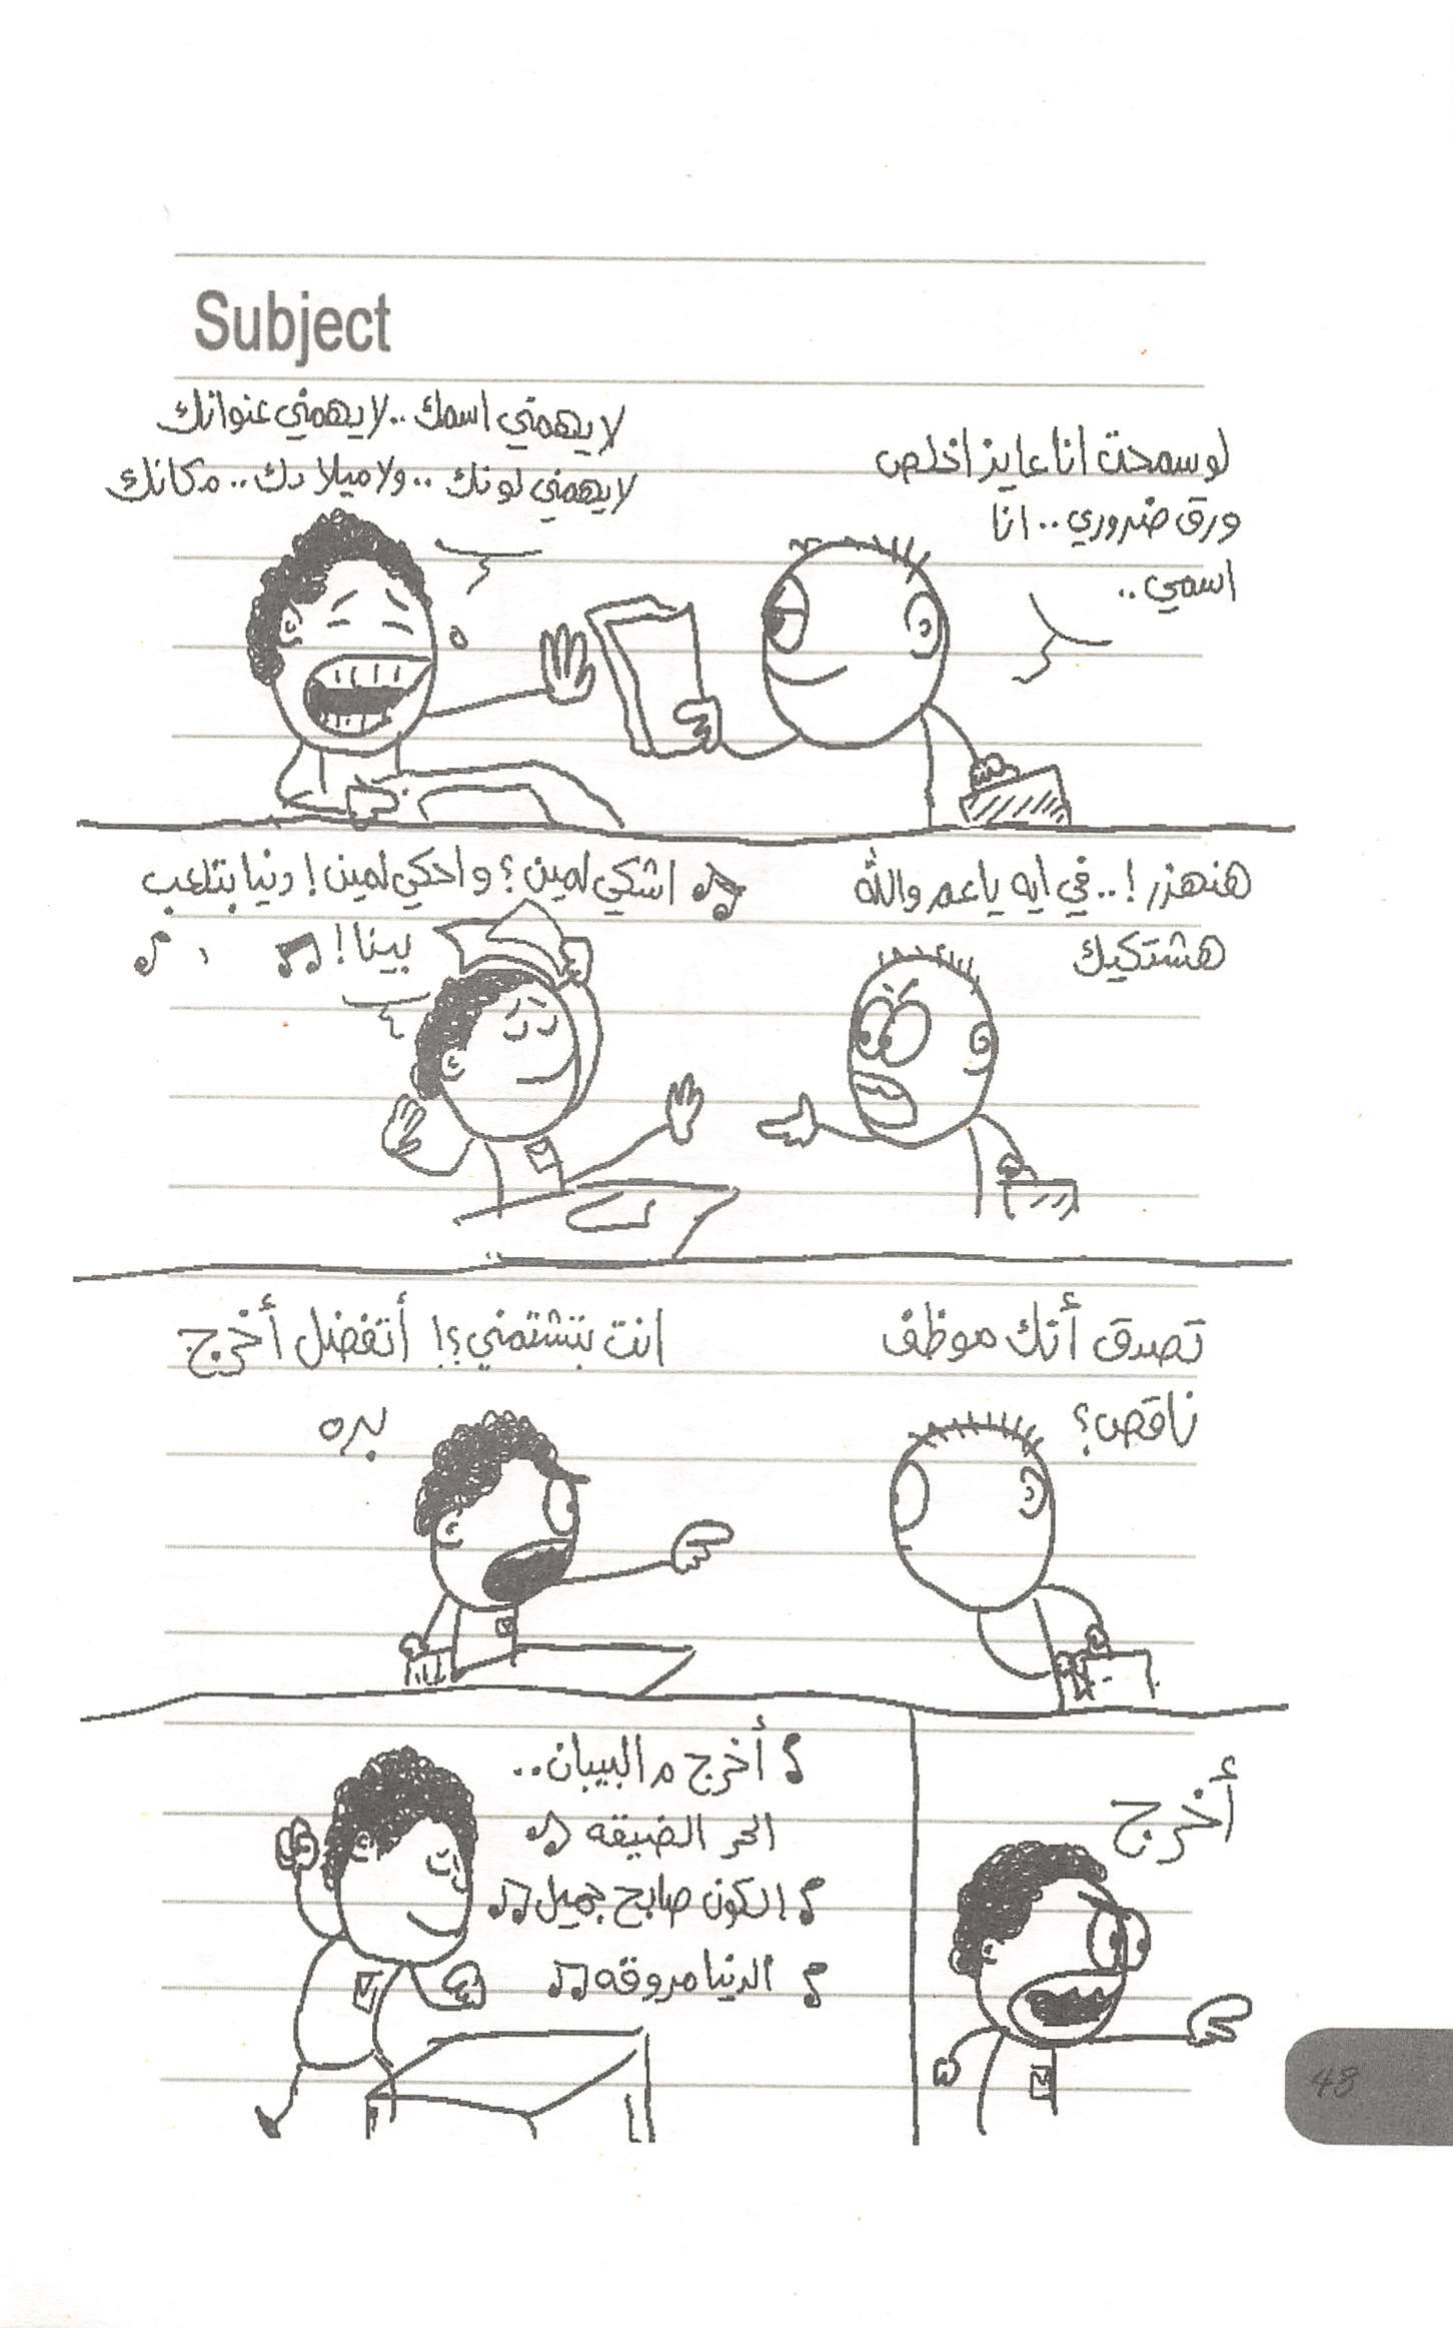 Subject
لو سمحت انا عايز اخلص
ورق ضروري .. انا
اسمي ..
لا يهمني اسمك .. لا يهمني عنوانك
لا يهمني لونك .. ولا ميلادك .. مكانك
هنهزر ! .. في ايه يا عم والله
هشتكيك
اشكي لمين ؟ واحكي لمين ! دنيا بتلعب
بينا !
تصدق أنك موظف
ناقص ؟
انت بتشتمني ؟! أتفضل أخرج
بره
أخرج
أخرج م البيبان ..
الحر الضيقه
الكون صابح جميل
الدنيا مروقه
48